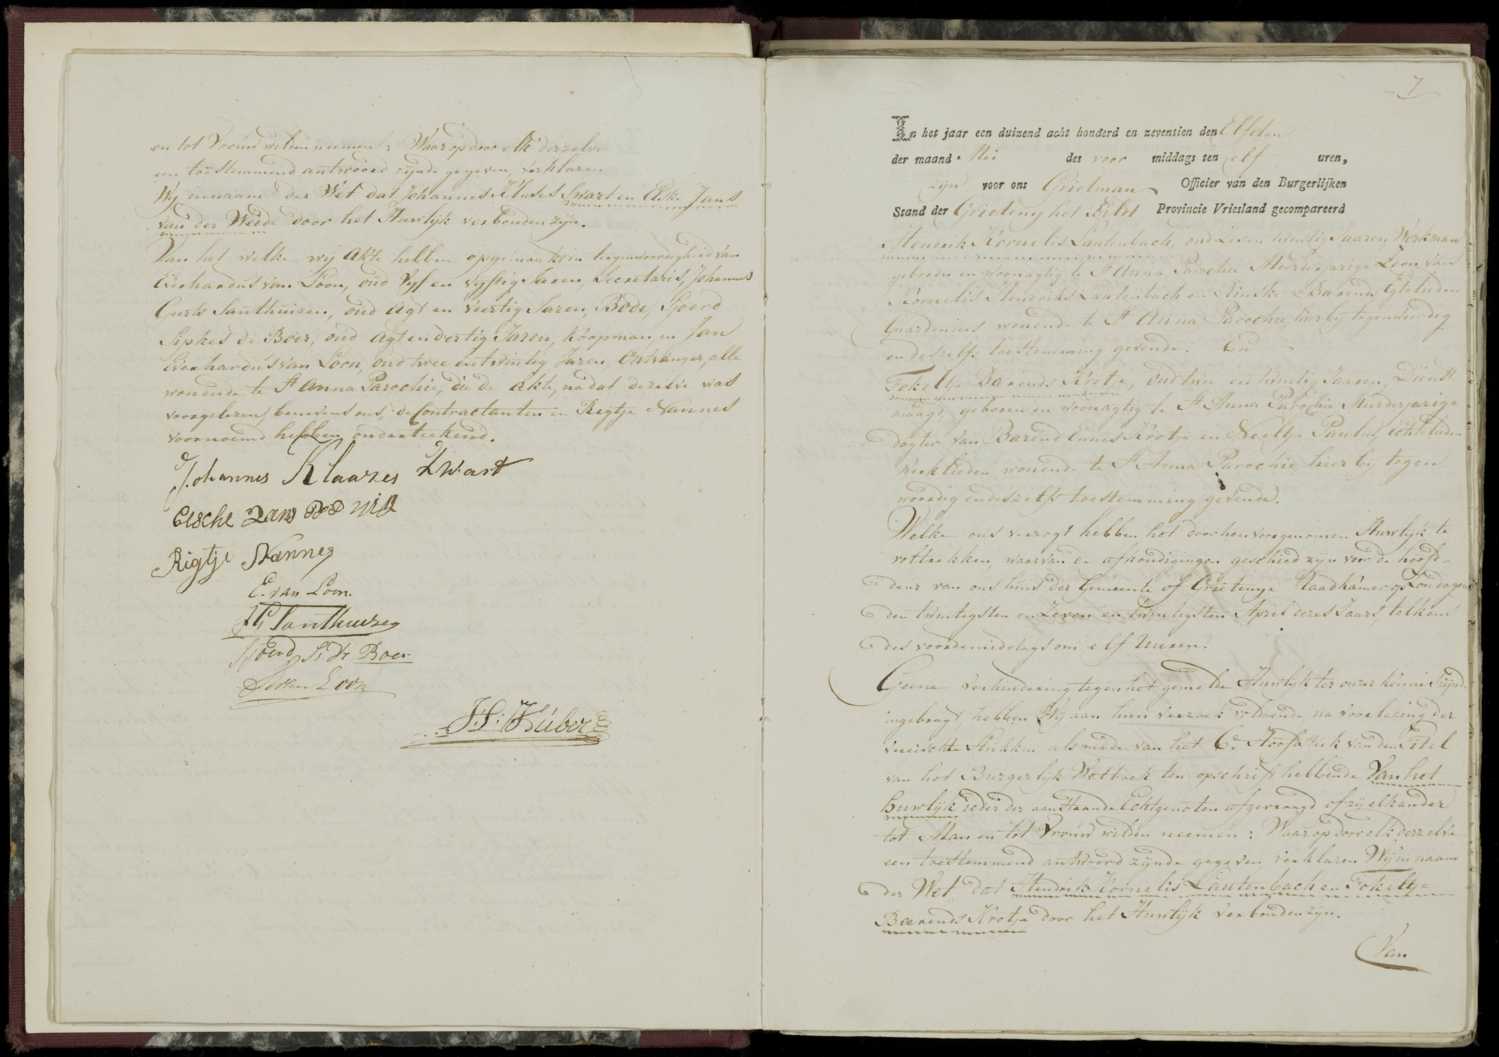 en tot Vrouw willen neemen; Waarop door elk derzelve
een toestemmend antwoord zijnde gegeven, verklaren
Wij in naam der Wet dat Johannes Klases Swart en Elske Jans
van der Weide door het Huwlijk verbonden zijn.
Van het welke wij Akte hebben opgemaakt in tegenwoordigheid van
Everhardus van Loon, oud Vijf en vyftig Jaren, Secretaris, Johannes
Curts Santhuizen, oud Agt en veertig Jaren, Bode, Sjoerd
Sipkes de Boer, oud Agt en dertig Jaren, Koopman, en Jan
Everhardus van Loon, oud twee en twintig Jaren, Ontvanger, alle
wonende te St Anna Parochie, die de Akte, na dat dezelve was
voorgelezen, benevens ons, de Contractanten en Rigtje Nannes
voornoemd hebben onderteekend.
Johannes Klaazes Zwart
Elsche Jans
Rigtje Nannes
E. van Loon
Santhuizen
Sjoerd S. de Boer
van Loon
7
In het jaar een duizend acht honderd en zeventien den Elfden
der maand Mei des voor middags ten elf uren,
zijn voor ons Grietman Officier van den Burgerlijken
Stand der Grieteny het Bildt Provincie Vriesland gecompareerd
Hendrik Kornelis Lautenbach, oud Zeven twintig Jaaren, Werkman
geboren en woonagtig te St Anna Parochie Meerderjarige Zoon van
Kornelis Hendriks Lautenbach en Rinske Baerends, Echtelieden
Gardeniers wonende te St Anna Parochie, hierby tegenwoordig
en deszelfs toestemming gevende. En
Fokeltje Baerends Krotje, oud en twintig Jaaren, Dienst
maagt, geboren en woonagtig te St Anna Parochie Minderjarige
dogter van Barend Krotje en Neeltje Paulus, echtelieden
werklieden wonende te St Anna Parochie hierby tegen
woordig en deszelfs toestemming gevende.
Welke ons verzogt hebben het door hen voorgenomen Huwlijk te
voltrekken, waarvan de afkondigingen geschied zijn voor de hoofd-
deur van ons huis der Gemeente of Grietenye Raadkamer op Zondagen
den twintigsten en Zeven en twintigsten April dezes Jaars, telkens
des voordemiddags om elf Uuren.
Geene verhindering tegen het gemelde Huwlijk ter onzer kennis zijnde
ingebragt hebben Wij aan hun verzoek voldoende, na voorlezing der
vereischte Stukken alsmede van het 6e Hoofdstuk van den Titel
van het Burgerlijk Wetboek ten opschrift hebbende Van het
Huwlijk ieder der aanstaande Echtgenoten afgevraagd of zij elkander
tot Man en tot Vrouw wilden neemen: Waarop door elk derzelve
een toestemmend antwoord zijnde gegeven verklaren Wij in naam
der Wet dat Hendrik Kornelis Lautenbach en Fokeltje
Baerends Krotje door het Huwlijk verbonden zijn.
Van